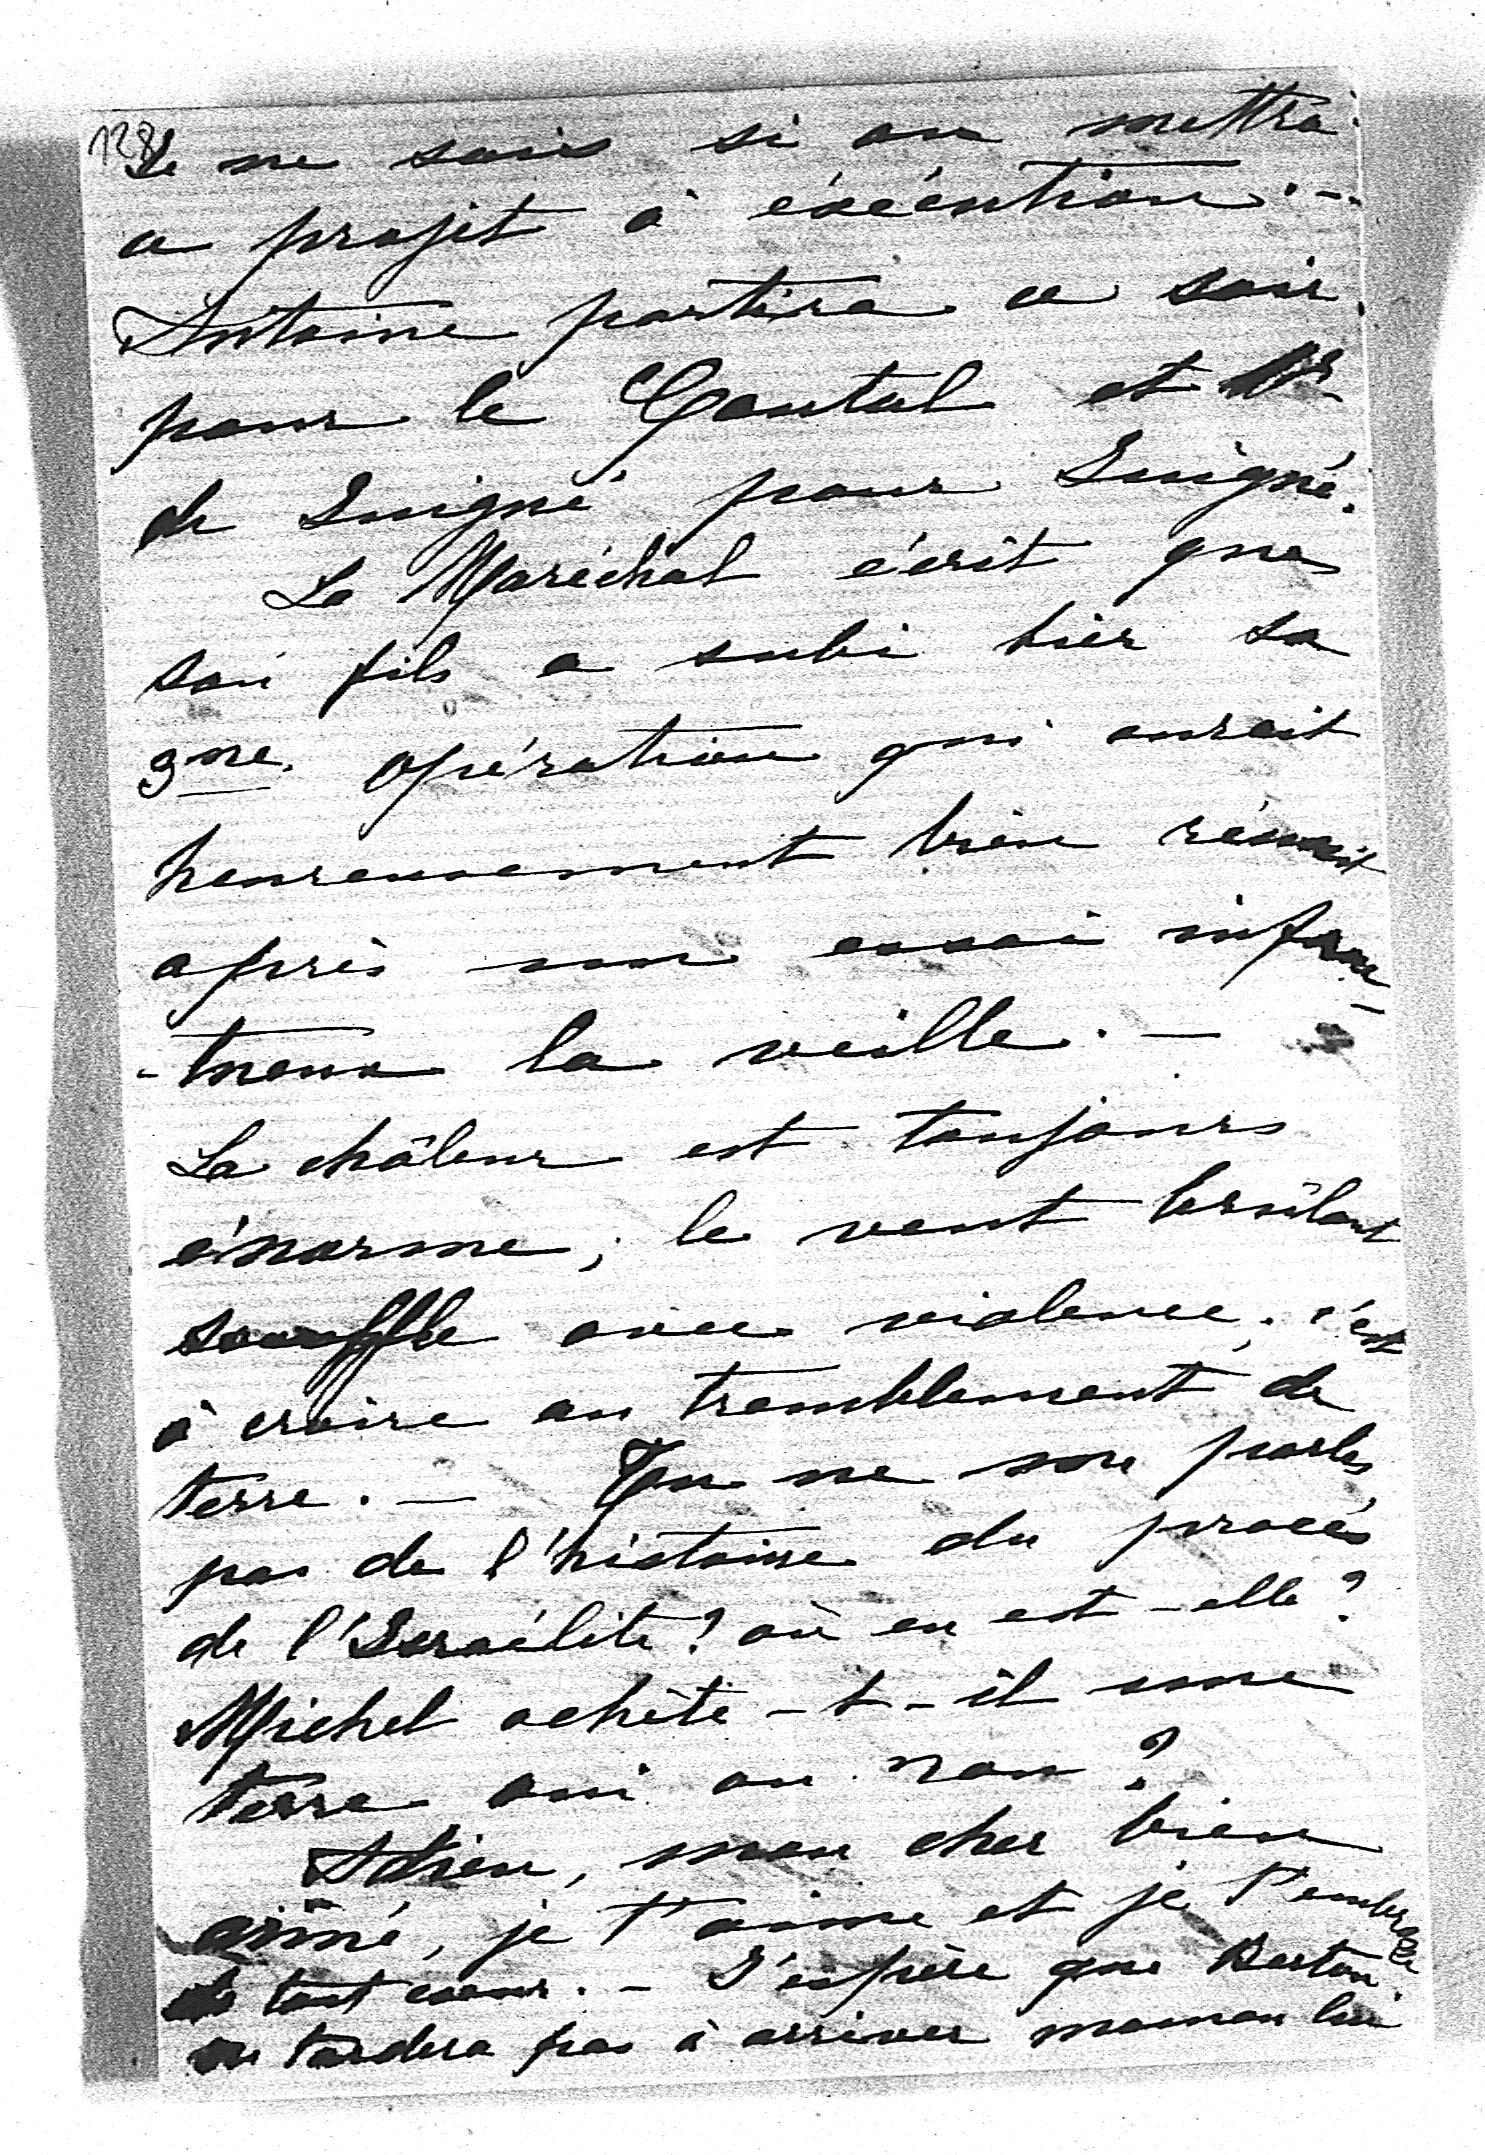 128
Je ne sais si on mettra
ce projet à éxécution. -
Antoine partira ce soir
pour le Cantal et Mr
de Juigné pour Juigné.
Le Maréchal écrit que
son fils a subi hier sa
3me opération qui aurait
heureusement bien réussit
après un essai infruc-
-tueux la veille. -
La châleur est toujours
énorme; le vent brûlant
souffle avec violence; c'est
à croire au tremblement de
terre. - Tu ne me parles
pas de l'histoire du procès
de l'Israélite? où en est-elle?
Michel achète-t-il une
terre oui ou non?
Adieu, mon cher bien
aimé, je t'aime et je t'embrasse
de tout coeur. - J'espère que Berton
ne tardera pas à arriver maman lui